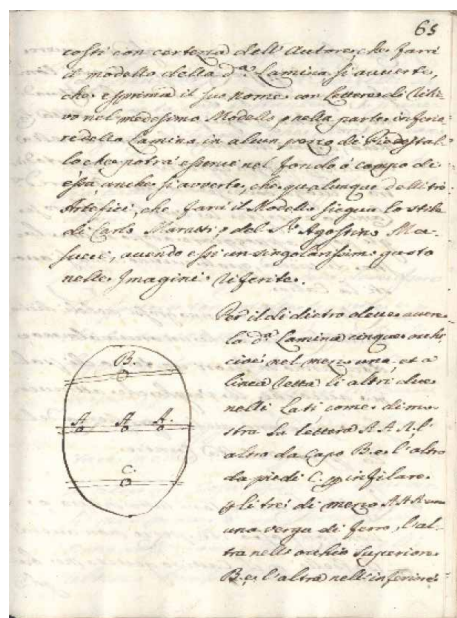 65
costi con certezza dell'Autore, che farà
il modello della d.ª Lamina si auuerte,
che esprima il suo nome con lettere di rilie
vo nel medesimo Modello, e nella parte inferio
re della Lamina in alcun pezzo di Piedestal
lo che potrà esporre nel fondo ò campo di
essa anche si avverte, che qualunque delli trè
Artefici, che farà il Modello siegua lo stile
di Carlo Maratti, ò del Sr. Agostino Ma-
succi, avendo essi un singolarissimo gusto
nelle Imagini riferite.
Per il di dietro deue auere
la d.ª Lamina cinque occhi
cioè nel mezzo uno, et a
linea retta li altri due
nelli lati come dimo
stra la lettera A.A.A. l'
altro da capo B. e l'altro
da piedi C. per infilare
li trè di mezzo A.A.A. con
una verga di ferro, l'al
tra nell'occhio superiore
B. e l'altra nell'inferiore
B.
A A A
C.